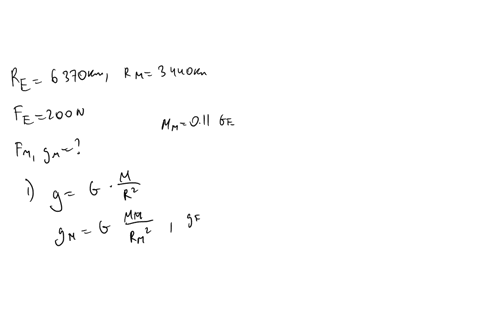 R_E = 6370km, R_M = 3440km
F_E = 200N
M_M = 0.11 G_E
F_M, g_M = ?
1) g = G · M/R²
g_M = G M_M/R_M² , g_E